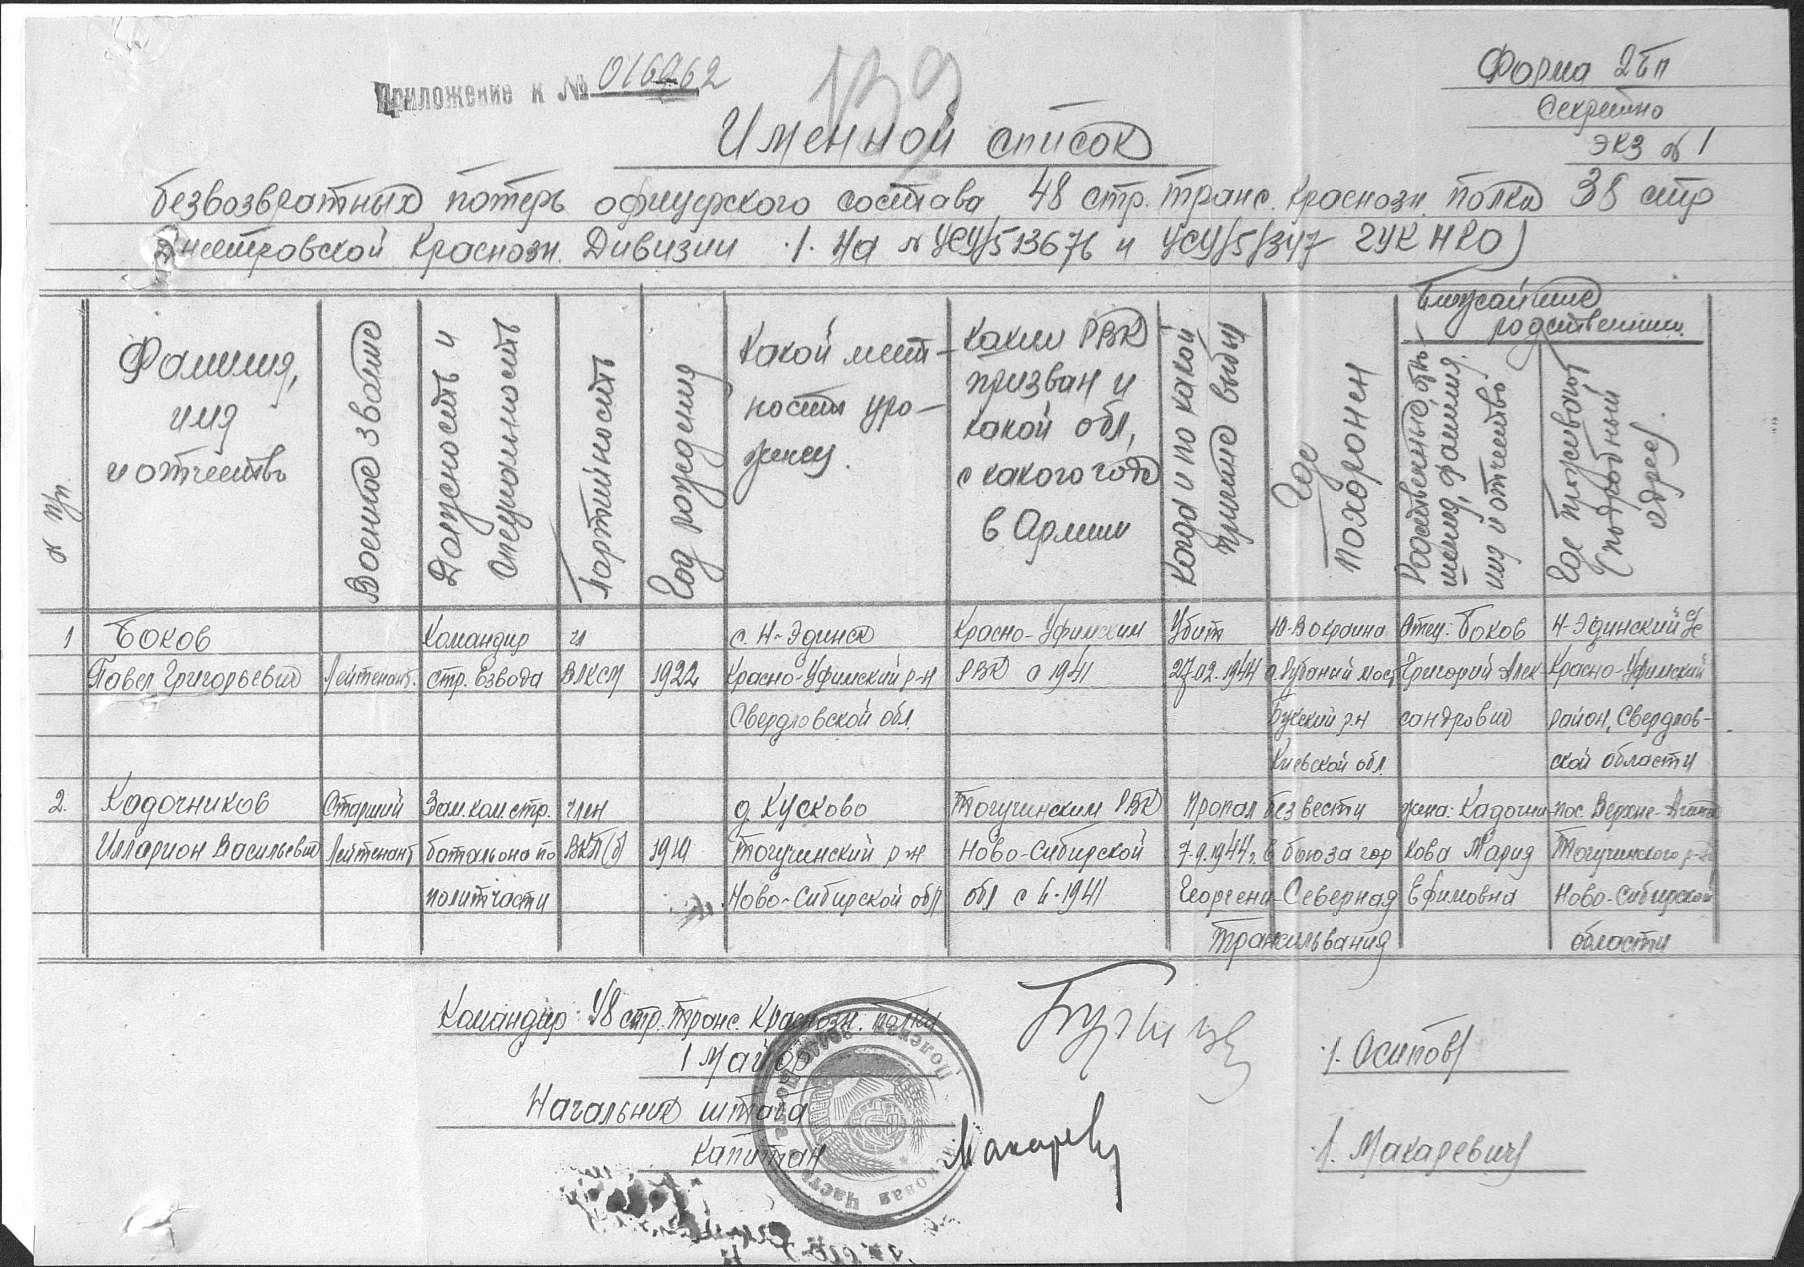 Приложение к № 016062
139
Форма 2бп
Секретно
экз № 1
Именной список
безвозвратных потерь офицерского состава 48 стр. транс. Краснозн. полка 38 стр
Днестровской Краснозн. Дивизии /. На № УСУ/5 13676 и УСУ/5/347 ГУК НКО/
№ п/п.
Фамилия, имя и отчество
Военное звание
Должность и специальность
Партийность
Год рождения
Какой местности уроженец.
Каким РВК призван и какой обл, с какого года в Армии
Когда и по какой причине выбыл
Где похоронен
Ближайшие родственники
Родственные отношения, фамилия, имя и отчество
Где проживают (подробный адрес).
1 Боков Командир чл с. Н-Эдинск Красно-Уфимским Убит Ю-В окраина Отец: Боков Н-Эдинский
Павел Григорьевич Лейтенант. стр. взвода ВЛКСМ 1922 Красно-Уфимский р-н РВК с 1941 27.02.1944 Григорий Алек- Красно-Уфимский
Свердловской обл. Букский р-н сандрович район, Свердлов-
Киевской обл. ской области
2. Кадочников Старший Зам. ком. стр. член д. Кусково Тогучинским РВК Пропал без вести жена: Кадочни- пос. Верхне-
Илларион Васильевич Лейтенант батальона по ВКП(б) 1910 Тогучинский р-н Ново-Сибирской 7.9.1944г. в бою за гор кова Мария Тогучинского р-на
политчасти Ново-Сибирской обл обл с 6-1941 Георгени-Северная Ефимовна Ново-Сибирской
Трансильвания области
Командир 48 стр. транс. Краснозн. полка
/ Майор /. Осипов/
Начальник штаба
капитан Макаревич /. Макаревич/
Полевая Почта
Войсковая Часть